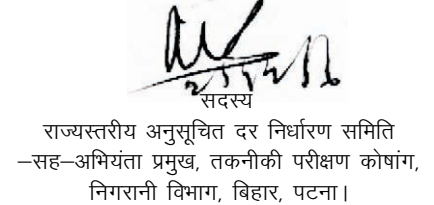 सदस्य
राज्यस्तरीय अनुसूचित दर निर्धारण समिति
–सह–अभियंता प्रमुख, तकनीकी परीक्षण कोषांग,
निगरानी विभाग, बिहार, पटना।